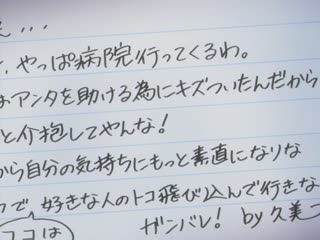 、やっぱ病院行ってくるわ。
アンタを助ける為にキズついたんだから
と介抱してやんな！
から自分の気持ちにもっと素直になりな
で好きな人のトコ飛び込んで行きな
ココは
ガンバレ！ by久美